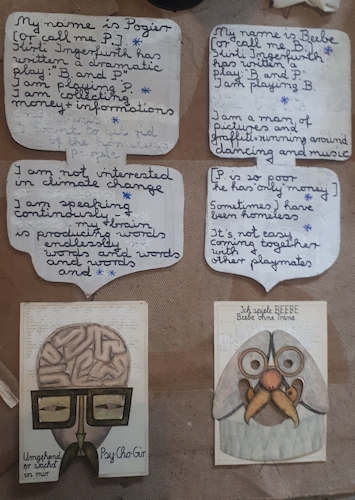 My name is Pogier
[or call me P.]
Kirti Ingerfurth has
written a dramatic
play: "B. and P"
I am playing P.
I am collecting
money + informations
I want to get rid
of the homeless
I am not interested
in climate change
I am speaking
continously -
my brain
is producing words
endlessly
words and words
and words
and **
My name is Beebe
[or call me B.]
Kirti Ingerfurth
has written a
play: "B and P"
I am playing B.
I am a man of
pictures and
graffiti running around
dancing and music
[P. is so poor
he has "only" money]
Sometimes I have
been homeless
It's not easy
coming together
with
other playmates
Umgehend
in mir
Psy-Cho-Gir
Ich spiele BEEBE
Beebe ohne Mine